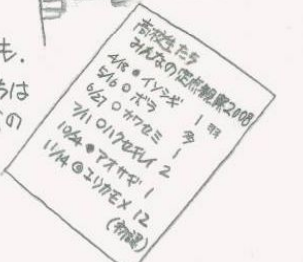 も.
ちは
の
高校生たち
みんなの定点観察2008
4/18 ● イソシギ 1羽
5/16 ○ ボラ 多
6/27 ○ カワセミ 1
7/11 ○ ハクセキレイ 2
10/4 ● アオサギ 1
11/14 ◎ ユリカモメ 12
(初認)